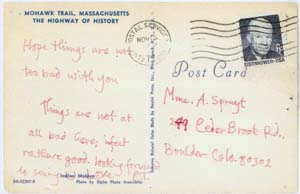 MOHAWK TRAIL, MASSACHUSETTS
THE HIGHWAY OF HISTORY
Hope things are not
too bad with you
Things are not at
all bad here; infact
rather good. looking forward
to seeing
POSTAL SERVICE
NOV
EISENHOWER·USA
Post Card
Mme. A. Spruyt
249 Ceder Brook Rd.,
Boulder Colo. 80302
Photo by Alpha Photo Associates